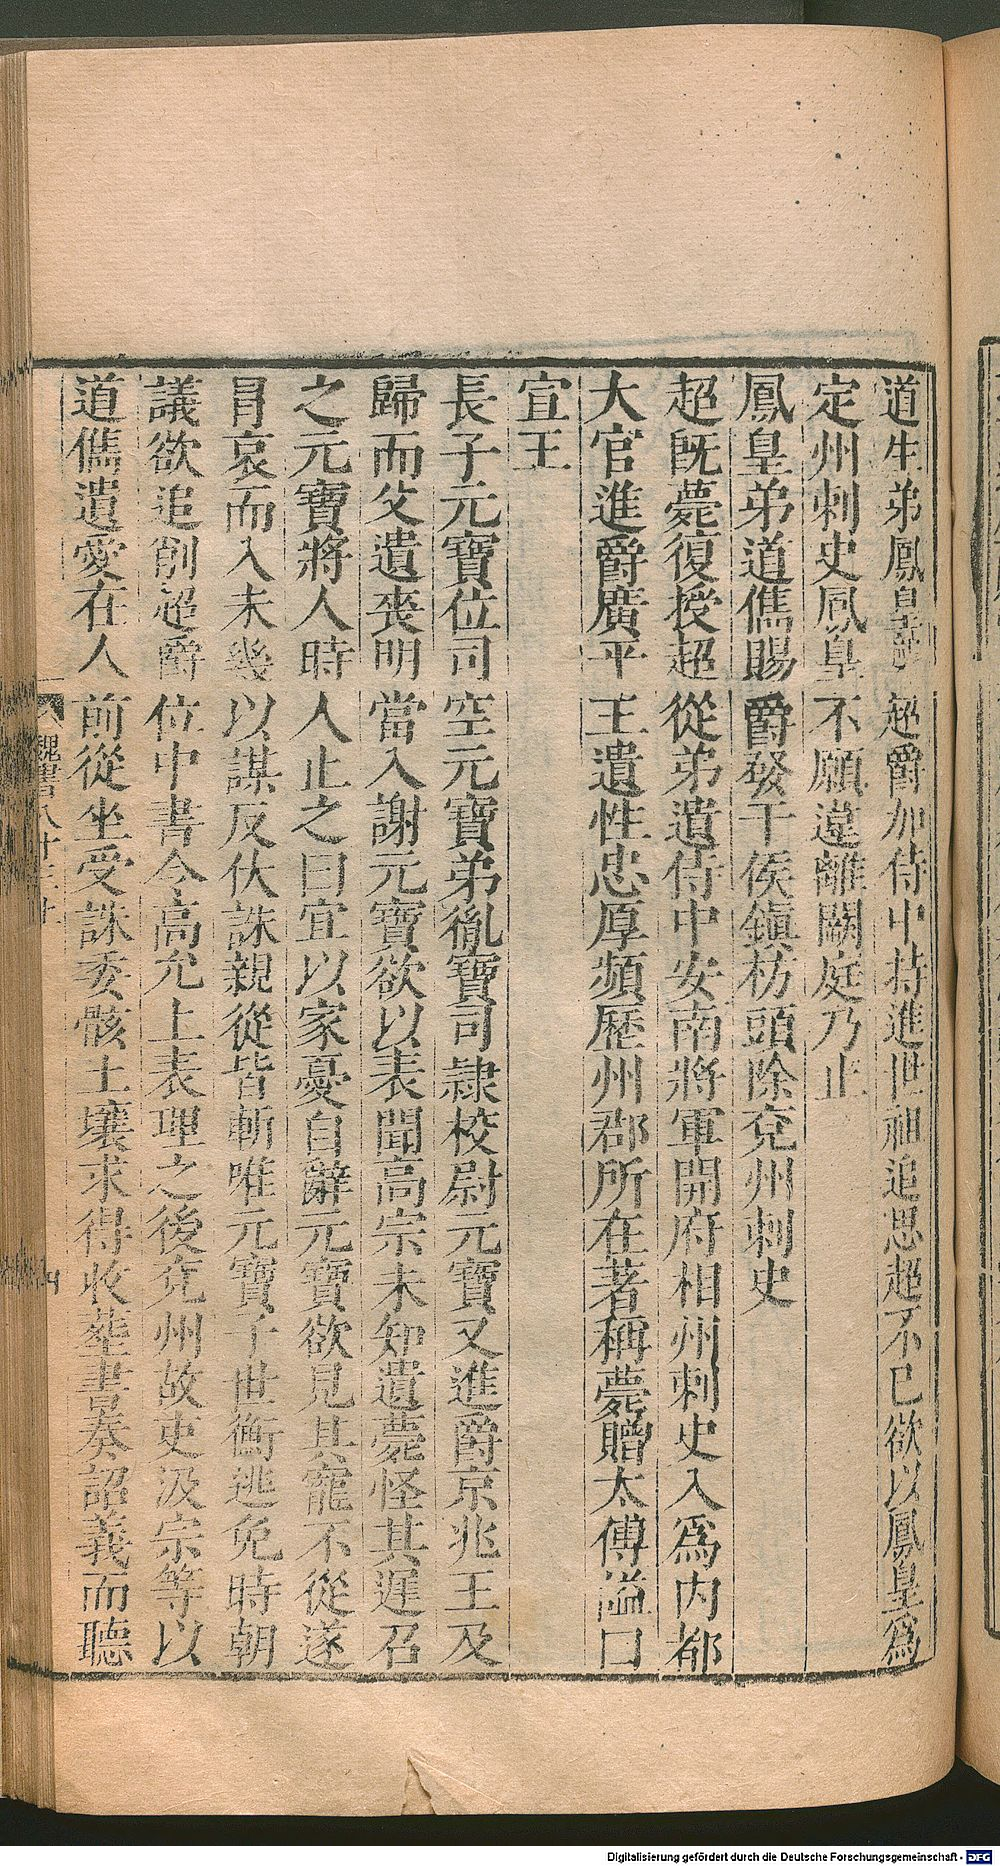 道生弟鳳皇襲超爵加侍中特進世祖追思超不已欲以鳳皇爲
定州刺史鳳皇不願違離闕庭乃止
鳳皇弟道儁賜爵發干侯鎮枋頭除兗州刺史
超既薨復授超從弟遺侍中安南將軍開府相州刺史入爲内都
大官進爵廣平王遺性忠厚頻歷州郡所在著稱薨贈太傅諡曰
宣王
長子元寶位司空元寶弟胤寶司隸校尉元寶又進爵京兆王及
歸而父遺喪明當入謝元寶欲以表聞高宗未知遺薨怪其遲召
之元寶將入時人止之曰宜以家憂自辭元寶欲見其寵不從遂
冒哀而入未幾以謀反伏誅親從皆斬唯元寶子世衡逃免時朝
議欲追削超爵位中書令高允上表理之後兗州故吏汲宗等以
道儁遺愛在人前從坐受誅委骸土壤求得收葬書奏詔義而聽
魏書八十三
Digitalisierung gefördert durch die Deutsche Forschungsgemeinschaft - DFG